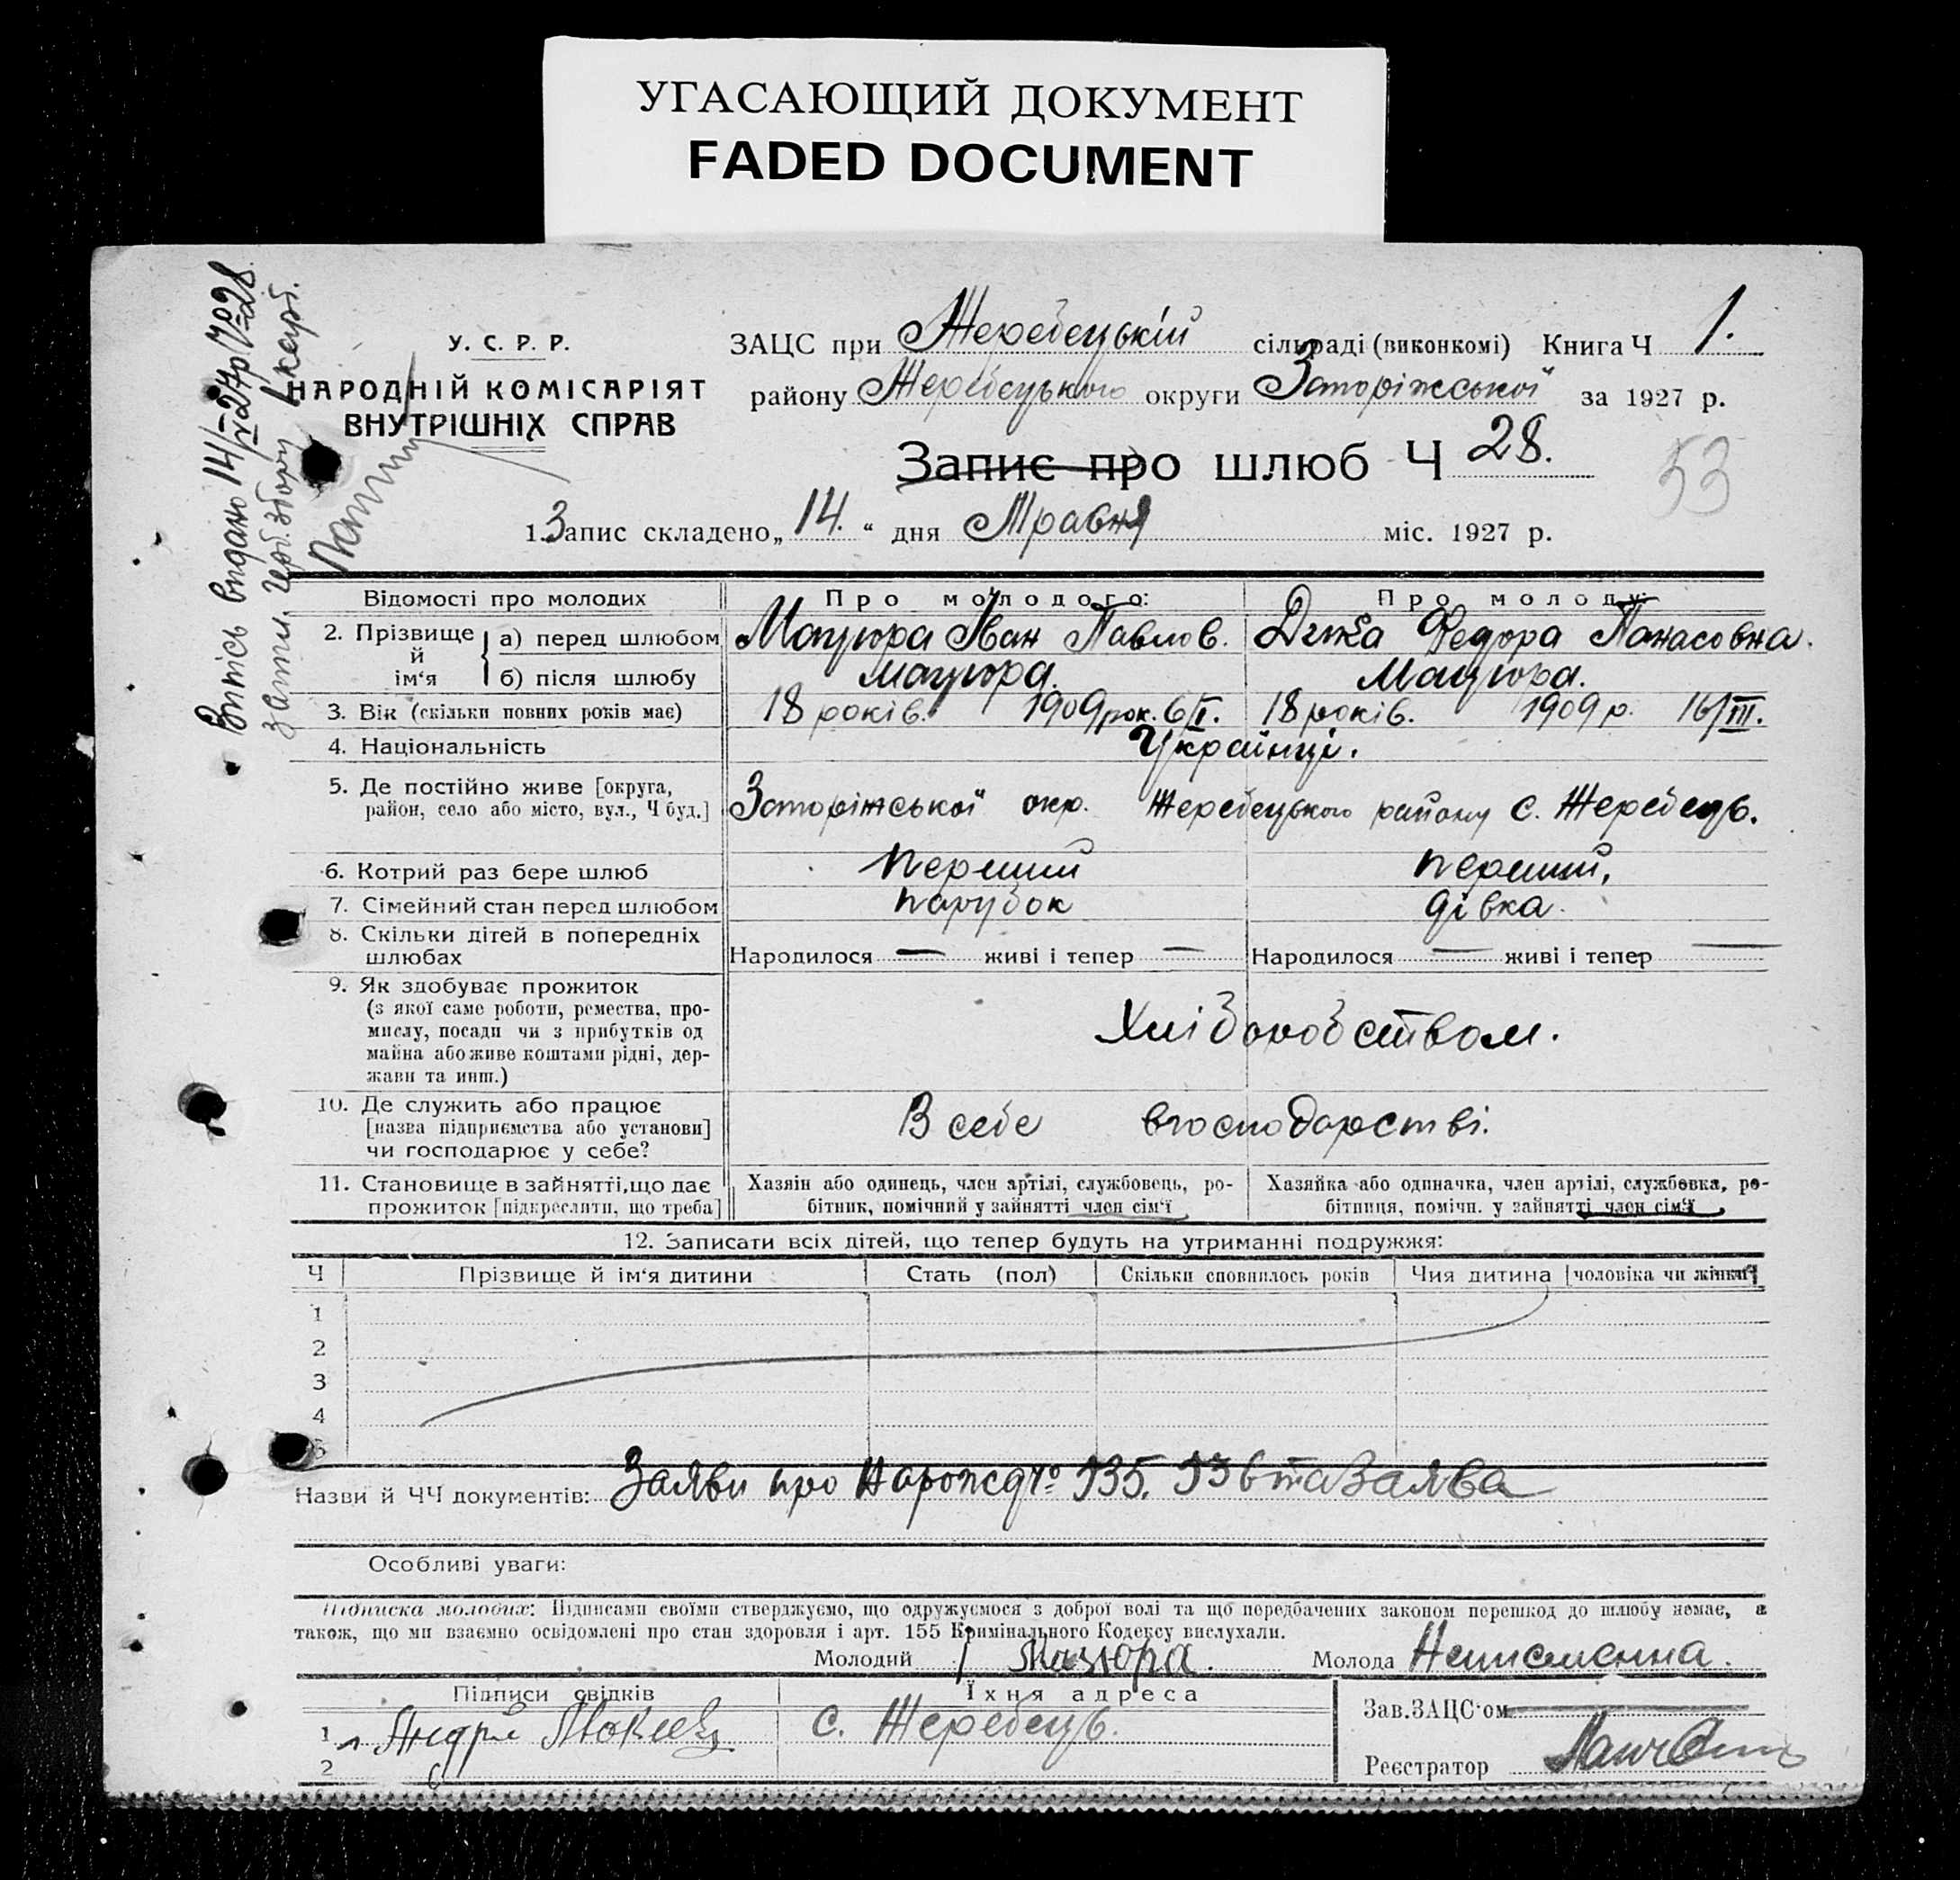 УГАСАЮЩИЙ ДОКУМЕНТ
FADED DOCUMENT
Випись видано 14/V-27р № 28
У. С. Р. Р.
НАРОДНІЙ КОМІСАРІЯТ
ВНУТРІШНІХ СПРАВ
ЗАЦС при Жеребецькій сільраді (виконкомі) Книга Ч 1.
району Жеребецького округи Запоріжської за 1927 р.
Запис про шлюб Ч 28.
53
1. Запис складено „14.“ дня Травня міс. 1927 р.
Відомості про молодих
Про молодого:
Про молоду:
2. Прізвище й ім‘я
а) перед шлюбом
Мацюра Іван Павлов.
Федора Панасовна.
б) після шлюбу
Мацюра.
Мацюра.
3. Вік (скільки повних років має)
18 років. 1909 рок. 6/I.
18 років. 1909 р. 16/III.
4. Національність
Українці.
5. Де постійно живе [округа,
район, село або місто, вул., Ч буд.]
Запоріжської окр. Жеребецького району с. Жеребець.
6. Котрий раз бере шлюб
Перший
перший,
7. Сімейний стан перед шлюбом
парубок
дівка.
8. Скільки дітей в попередніх
шлюбах
Народилося — живі і тепер —
Народилося — живі і тепер —
9. Як здобуває прожиток
(з якої саме роботи, ремества, про-
мислу, посади чи з прибутків од
майна або живе коштами рідні, дер-
жави та инш.)
Хліборобством.
10. Де служить або працює
[назва підприємства або установи]
чи господарює у себе?
В себе вгосподарстві.
11. Становище в зайнятті, що дає
прожиток [підкреслити, що треба]
Хазяїн або одинець, член артілі, службовець, ро-
бітник, помічний у зайнятті член сім‘ї
Хазяйка або одиначка, член артілі, службовка, ро-
бітниця, помічн. у зайнятті член сім‘ї
12. Записати всіх дітей, що тепер будуть на утриманні подружжя:
Ч
Прізвище й ім‘я дитини
Стать (пол)
Скільки сповнилось років
Чия дитина [чоловіка чи жінки]
1
2
3
4
5
Назви й ЧЧ документів: Заяви про Нарожд 935. та Заява
Особливі уваги:
Підписка молодих: Підписами своїми стверджуємо, що одружуємося з доброї волі та що передбачених законом перешкод до шлюбу немає, а
також, що ми взаємно освідомлені про стан здоровля і арт. 155 Кримінального Кодексу вислухали.
Молодий Мазюра.
Молода Неписменна.
Підписи свідків
Їхня адреса
1 Андрій
с. Жеребець.
2
Зав. ЗАЦС‘ом
Реєстратор